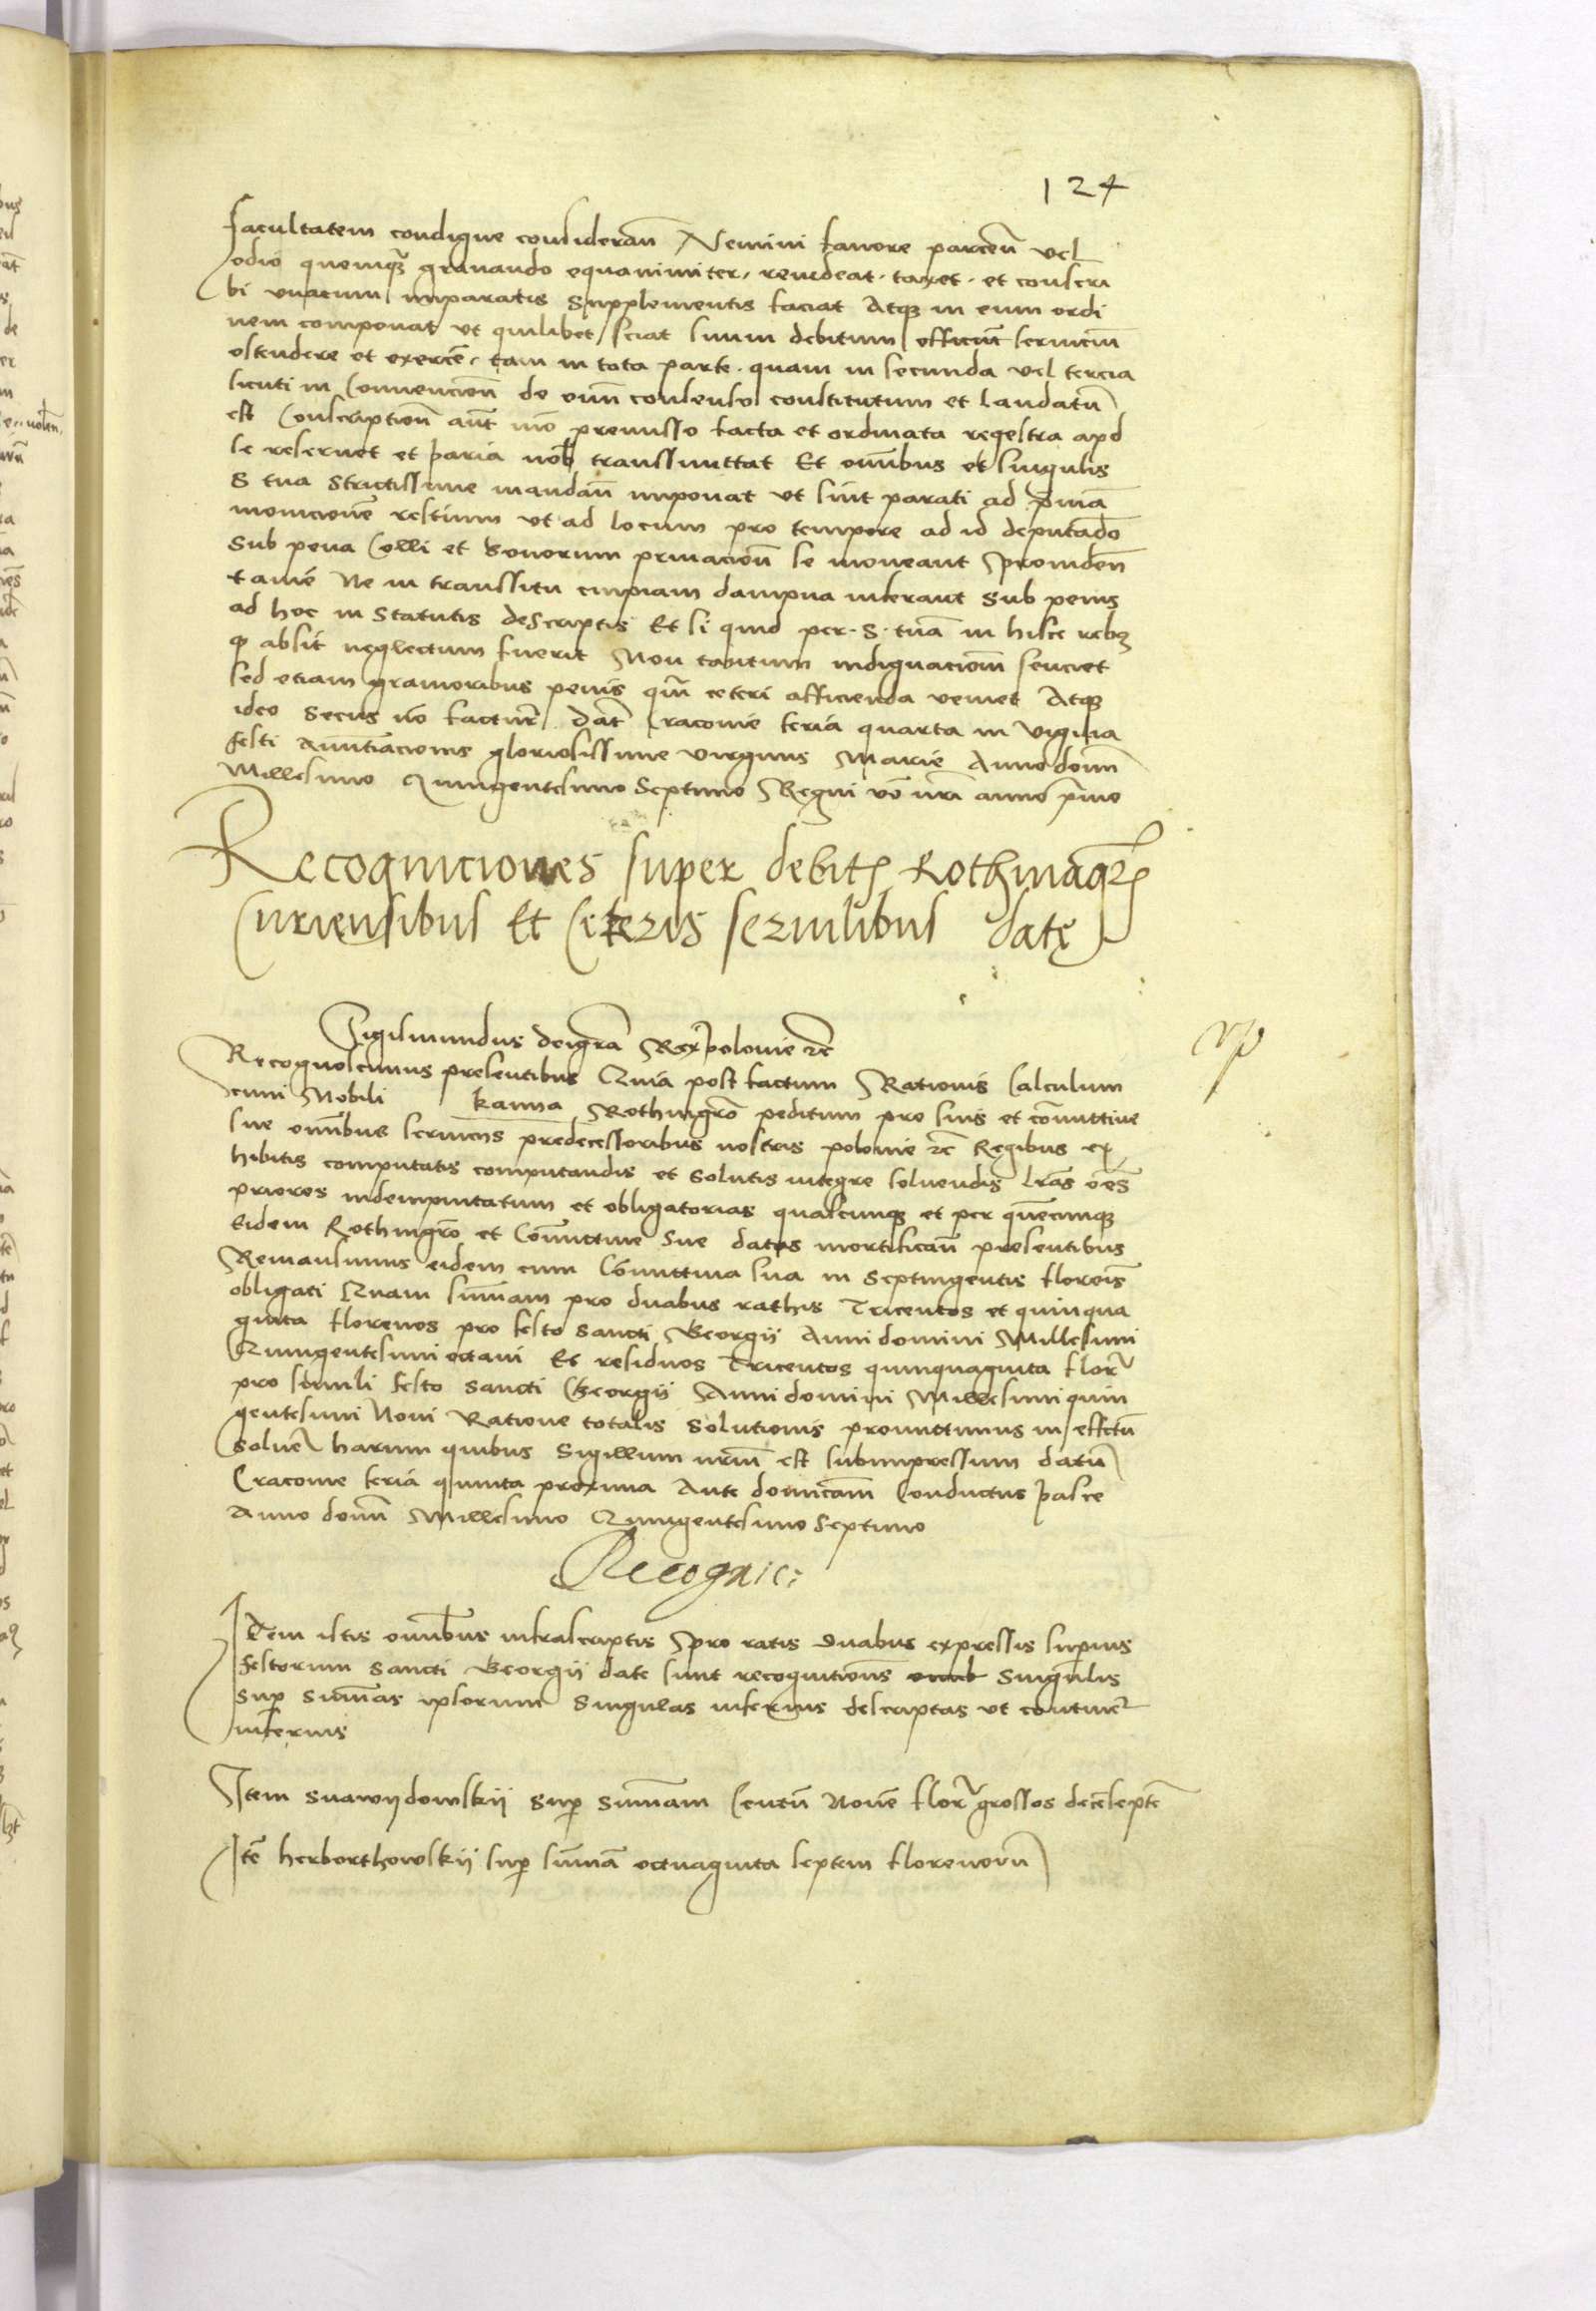 124
facultatem condigne considerañ Nemini favore parceñ vel
odio quemq̃ gravando equanimiter, reuideat. taxet. et conscri
bi vnacum imparatis Supplementis faciat Atq3 in eum ordi
nem componat vt quilibet sciat suum debitum seruiciũ
ostendere et exercẽ. tam in tota parte. quam in secunda vel tercia
sicuti in Convencioñ de omñ consensu constitutum et laudatũ
est Conscriptioñ aũt mõ premisso facta et ordinata regestra apd
se reseruet et paria nob̃ transmittat Et omñibus et singulis
S tua Strictissime mandañ imponat vt sint parati ad primã
monicionẽ restium vt ad locum pro tempore ad id deputandõ
Sub pena Colli et bonorum priuacioñ se moveant Prouideñ
tamẽ Ne in transsitu cuipiam dampna inferant Sub penis
ad hoc in Statutis descriptis Et si quid per. S. tuã in hisce reb3
q̃ absit neglectum fuerit Non tantum indignacioñ senciet
sed etiam gravioribus penis q̃m ceteri afficienda veniet Atq3
ideo Secus nõ factur̃ Dat̃ Cracovie feria quarta in vigilia
festi Annũtiacionis gloriosissime virginis Marie Anno domñ
Millesimo Quingentesimo Septimo Regni vẽ nr̃i anno p̃mo
Recogniciones super debitꝭ Rothmagr̃ꝭ
Curiensibus Et Ceteris servilibus datę
Sigismundus dei gr̃a Rex polonie ꝛc̃
Recognoscimus presentibus Quia post factum Rationis Calculum
cum Nobili kanna Rothmgr̃o peditum pro suis et com̃ittive
sue omñibus seruiciis predecessoribus nostris polonie ꝛc̃ Regibus ex
hibitis computatis computandis et solutis integre soluendis lr̃as õẽs
priores indempnitatum et obligatorias quascunq3 et per quẽcunq3
Eidem Rothmgr̃o et Com̃ittive Sue datas mortificañ presentibus
Remansimus eidem cum Com̃ittiva sua in Septingentis florenis̃
obligati Quam sum̃am pro duabus rathis Tricentos et quinqua
ginta florenos pro festo sancti Georgij Anni domini Millesimi
Quingentesimi octaui Et residuos Tricentos quinquaginta flor̃
pro simili festo Sancti Georgij Anni domini Millesimi quin
gentesimi Noni Ratione totalis Solutionis promittimus in effctũ
Soluẽ harum quibus Sigillum nr̃m est subimpressum datũ
Cracovie feria quinta proxima Ante domicam̃ Conductus pasce
Anno domñ Millesimo Quingentesimo Septimo
Recognic:
Idem istis omñibus infrascriptis pro ratis duabus expressis superius
festorum Sancti Georgij date sunt recognitiones Singulis
Sup̃ Sum̃as ipsorum Singulas inferius descriptas vt continet̃
inferius
Item Snawijdowskij Sup̃ Sum̃am Centũ Novẽ flor̃ grossos decẽseptẽ
Itẽ herborthowskij sup̃ sum̃ã octuaginta septem florenorũ